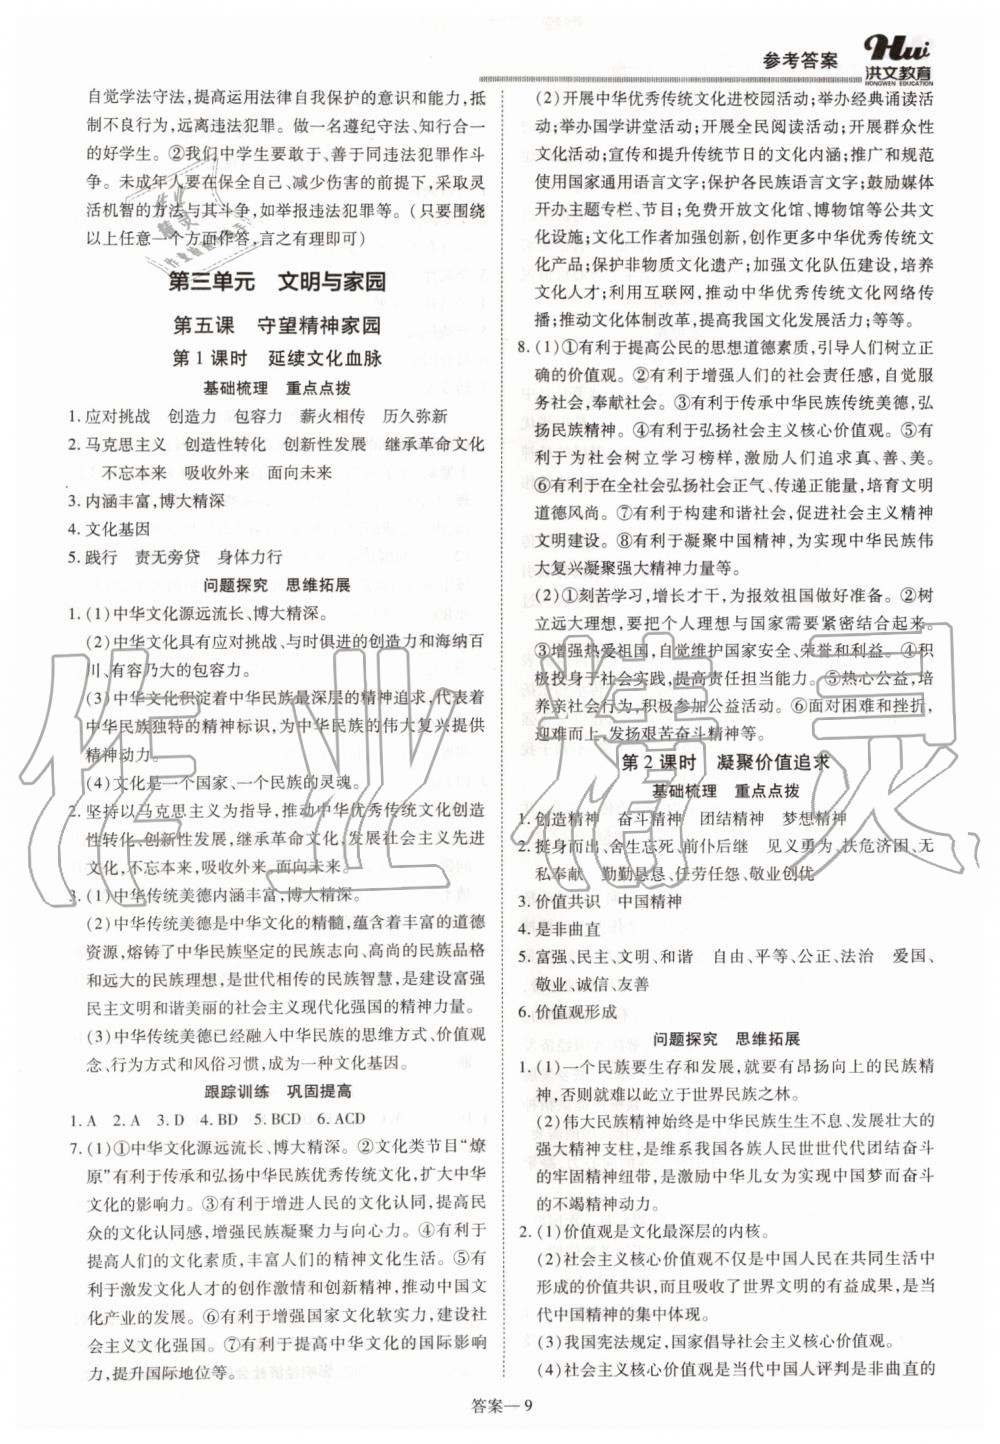 参考答案
Hwi
洪文教育
HONGWEN EDUCATION
自觉学法守法，提高运用法律自我保护的意识和能力，抵
制不良行为，远离违法犯罪。做一名遵纪守法、知行合一
的好学生。②我们中学生要敢于、善于同违法犯罪作斗
争。未成年人要在保全自己、减少伤害的前提下，采取灵
活机智的方法与其斗争，如举报违法犯罪等。（只要围绕
以上任意一个方面作答，言之有理即可）
第三单元 文明与家园
第五课 守望精神家园
第1课时 延续文化血脉
基础梳理 重点点拨
1. 应对挑战 创造力 包容力 薪火相传 历久弥新
2. 马克思主义 创造性转化 创新性发展 继承革命文化
不忘本来 吸收外来 面向未来
3. 内涵丰富，博大精深
4. 文化基因
5. 践行 责无旁贷 身体力行
问题探究 思维拓展
1. (1)中华文化源远流长、博大精深。
(2)中华文化具有应对挑战、与时俱进的创造力和海纳百
川、有容乃大的包容力。
(3)中华文化积淀着中华民族最深层的精神追求，代表着
中华民族独特的精神标识，为中华民族的伟大复兴提供
精神动力。
(4)文化是一个国家、一个民族的灵魂。
2. 坚持以马克思主义为指导，推动中华优秀传统文化创造
性转化、创新性发展，继承革命文化，发展社会主义先进
文化，不忘本来、吸收外来、面向未来。
3. (1)中华传统美德内涵丰富，博大精深。
(2)中华传统美德是中华文化的精髓，蕴含着丰富的道德
资源，熔铸了中华民族坚定的民族志向、高尚的民族品格
和远大的民族理想，是世代相传的民族智慧，是建设富强
民主文明和谐美丽的社会主义现代化强国的精神力量。
(3)中华传统美德已经融入中华民族的思维方式、价值观
念、行为方式和风俗习惯，成为一种文化基因。
跟踪训练 巩固提高
1. A 2. A 3. D 4. BD 5. BCD 6. ACD
7. (1)①中华文化源远流长、博大精深。②文化类节目“燎
原”有利于传承和弘扬中华民族优秀传统文化，扩大中华
文化的影响力。③有利于增进人民的文化认同，提高民
众的文化认同感，增强民族凝聚力与向心力。④有利于
提高人们的文化素质，丰富人们的精神文化生活。⑤有
利于激发文化人才的创作激情和创新精神，推动中国文
化产业的发展。⑥有利于增强国家文化软实力，建设社
会主义文化强国。⑦有利于提高中华文化的国际影响
力，提升国际地位等。
(2)开展中华优秀传统文化进校园活动；举办经典诵读活
动；举办国学讲堂活动；开展全民阅读活动；开展群众性
文化活动；宣传和提升传统节日的文化内涵；推广和规范
使用国家通用语言文字；保护各民族语言文字；鼓励媒体
开办主题专栏、节目；免费开放文化馆、博物馆等公共文
化设施；文化工作者加强创新，创作更多中华优秀传统文
化产品；保护非物质文化遗产；加强文化队伍建设，培养
文化人才；利用互联网，推动中华优秀传统文化网络传
播；推动文化体制改革，提高我国文化发展活力；等等。
8. (1)①有利于提高公民的思想道德素质，引导人们树立正
确的价值观。②有利于增强人们的社会责任感，自觉服
务社会，奉献社会。③有利于传承中华民族传统美德，弘
扬民族精神。④有利于弘扬社会主义核心价值观。⑤有
利于为社会树立学习榜样，激励人们追求真、善、美。
⑥有利于在全社会弘扬社会正气、传递正能量，培育文明
道德风尚。⑦有利于构建和谐社会，促进社会主义精神
文明发展。⑧有利于凝聚中国精神，为实现中华民族伟
大复兴凝聚强大精神力量等。
(2)①刻苦学习，增长才干，为报效祖国做好准备。②树
立远大理想，要把个人理想与国家需要紧密结合起来。
③增强热爱祖国，自觉维护国家安全、荣誉和利益。④积
极投身于社会实践，提高责任担当能力。⑤热心公益，培
养亲社会行为，积极参加公益活动。⑥面对困难和挫折，
迎难而上，发扬艰苦奋斗精神等。
第2课时 凝聚价值追求
基础梳理 重点点拨
1. 创造精神 奋斗精神 团结精神 梦想精神
2. 挺身而出、舍生忘死、前仆后继 见义勇为、扶危济困、无
私奉献 勤勤恳恳、任劳任怨、敬业创优
3. 价值共识 中国精神
4. 是非曲直
5. 富强、民主、文明、和谐 自由、平等、公正、法治 爱国、
敬业、诚信、友善
6. 价值观形成
问题探究 思维拓展
1. (1)一个民族要生存和发展，就要有昂扬向上的民族精
神，否则就难以屹立于世界民族之林。
(2)伟大民族精神始终是中华民族生生不息、发展壮大的
强大精神支柱，是维系我国各族人民世世代代团结奋斗
的牢固精神纽带，是激励中华儿女为实现中国梦而奋斗
的不竭精神动力。
2. (1)价值观是文化最深层的内核。
(2)社会主义核心价值观不仅是中国人民在共同生活中
形成的价值共识，而且吸收了世界文明的有益成果，是当
代中国精神的集中体现。
(3)我国宪法规定，国家倡导社会主义核心价值观。
(4)社会主义核心价值观是当代中国人评判是非曲直的
答案—9
作业精灵